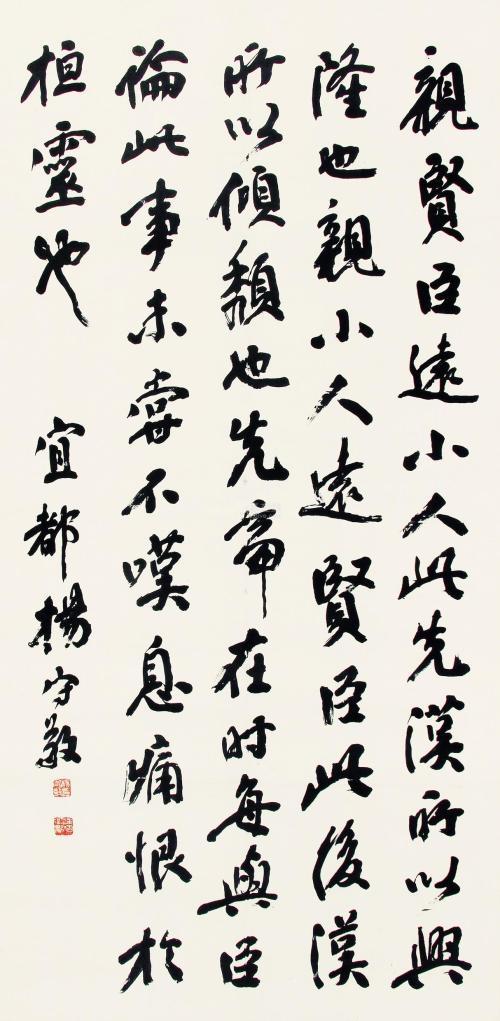 親賢臣遠小人此先漢所以興
隆也親小人遠賢臣此後漢
所以傾頹也先帝在时每與臣
論此事未嘗不嘆息痛恨於
桓靈也
宜都楊守敬